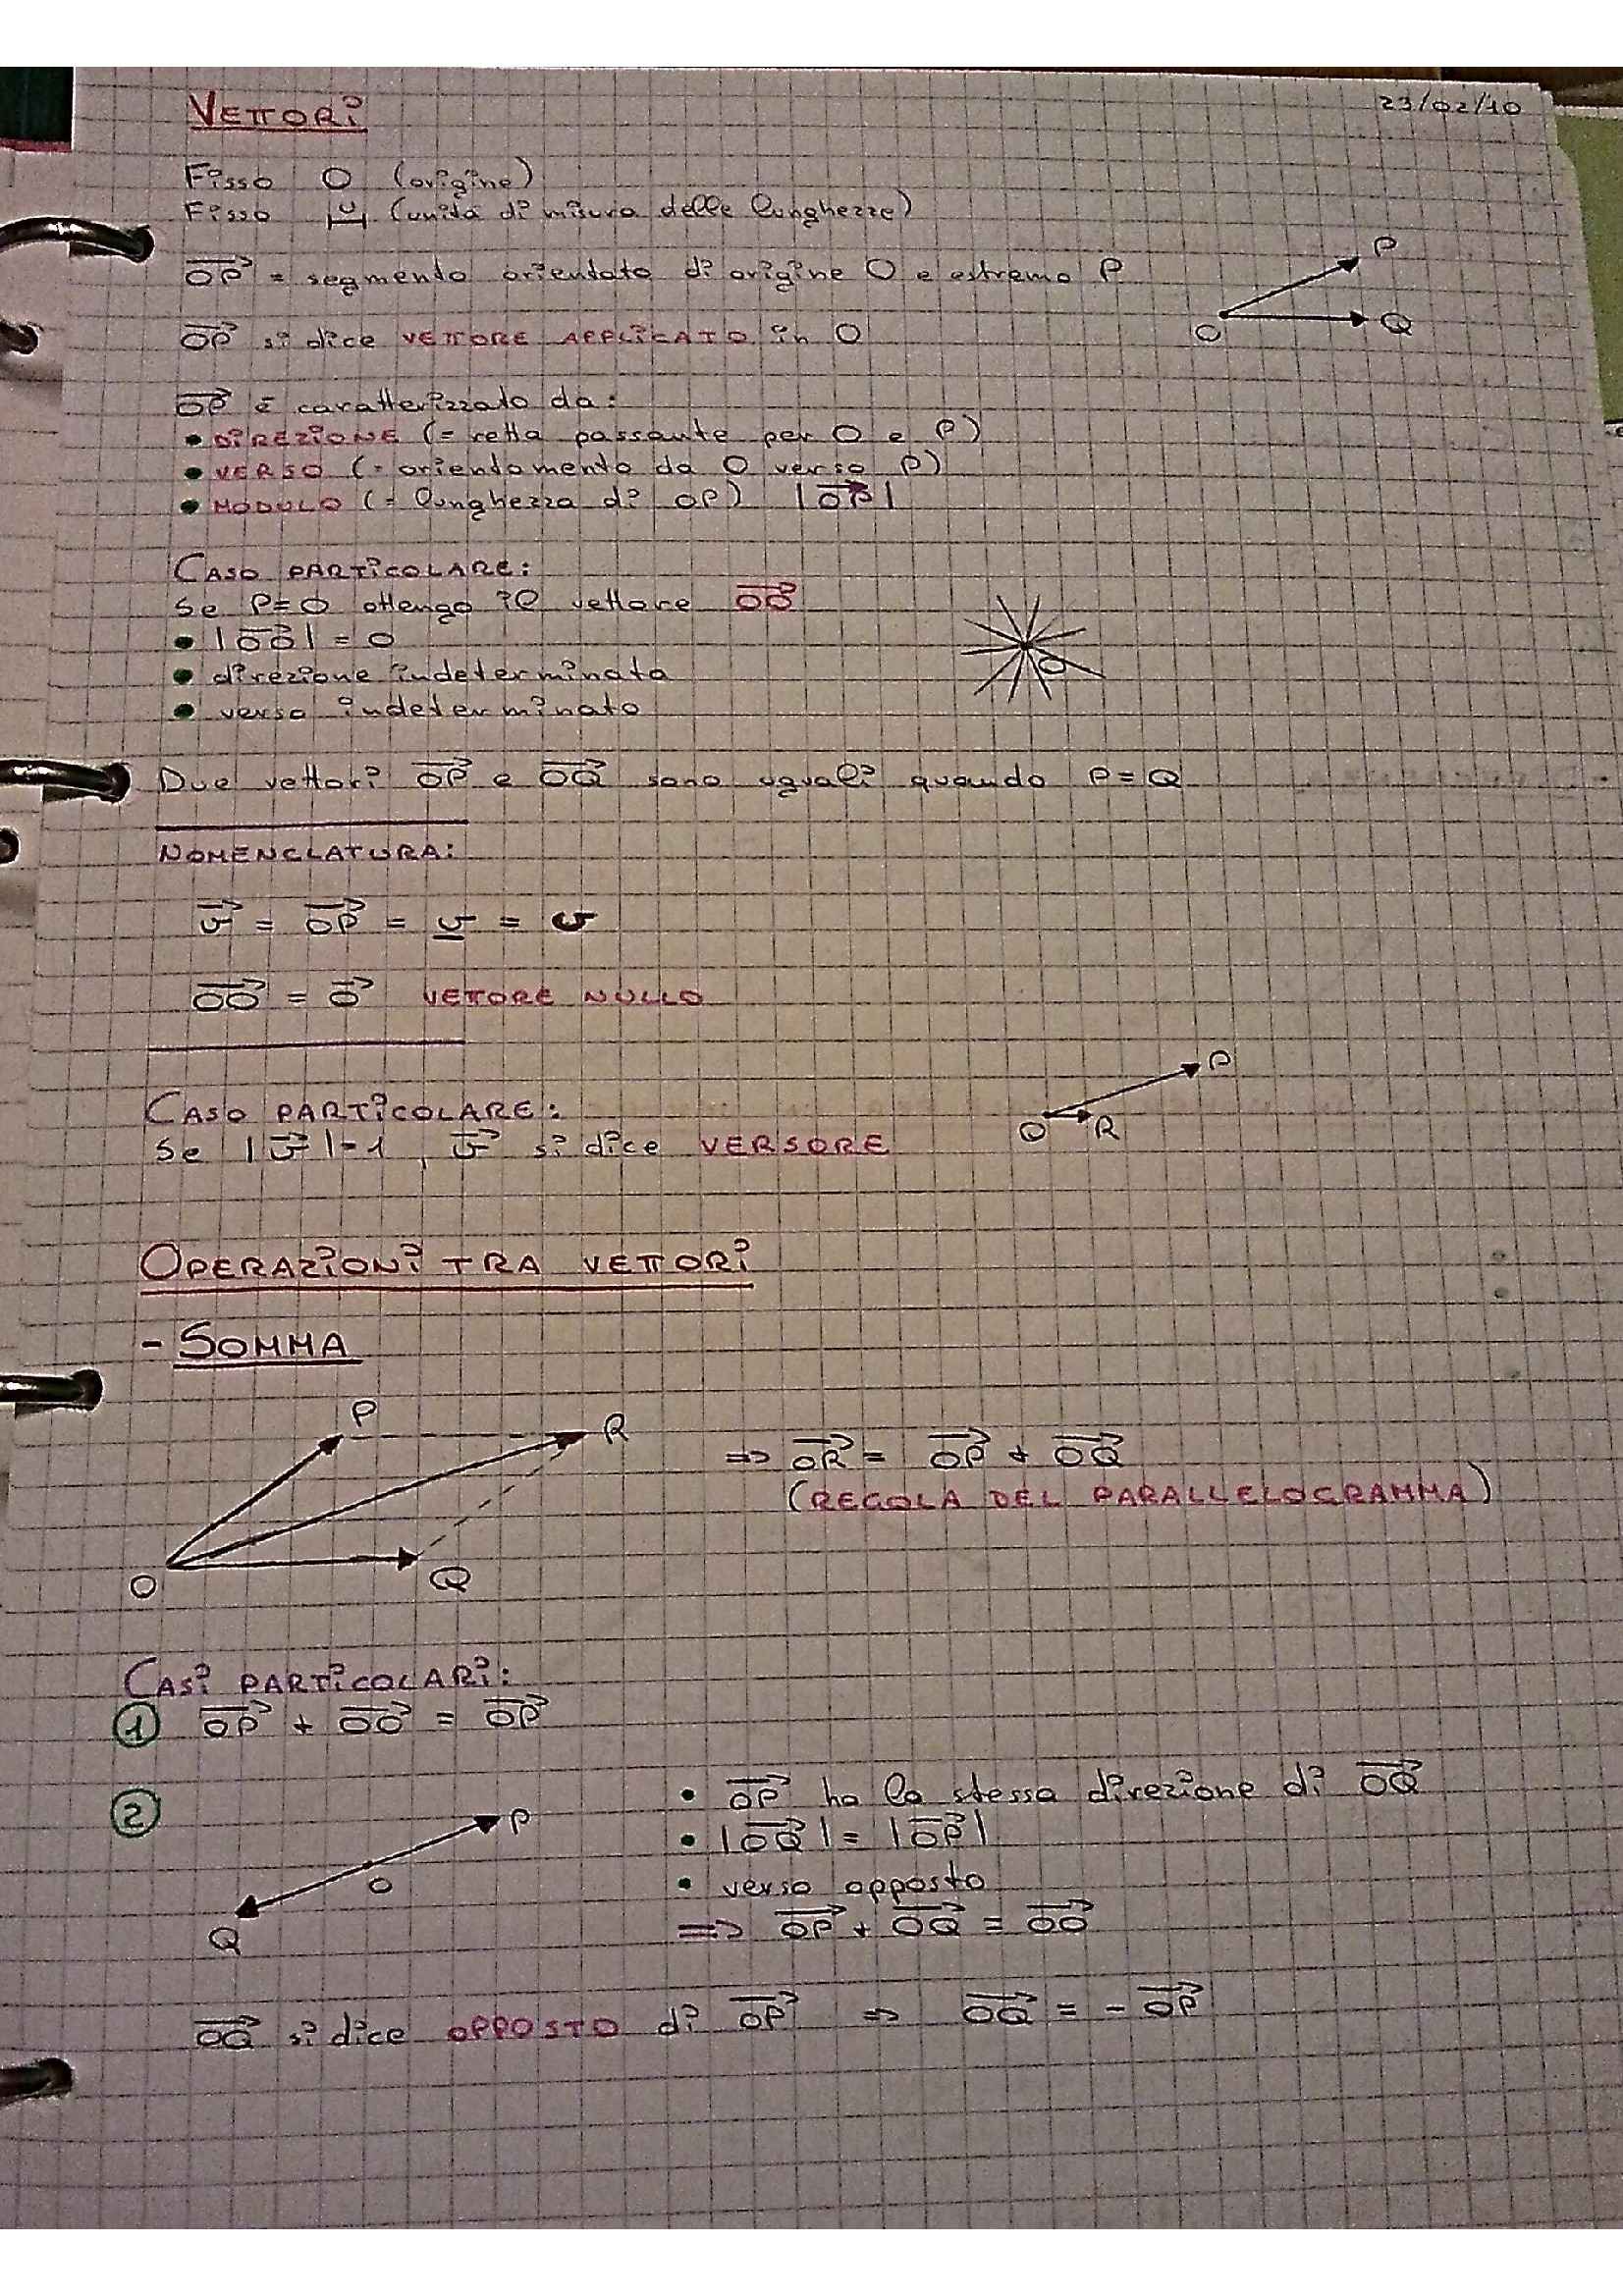 VETTORI
23/02/10
Fisso O (origine)
Fisso u (unità di misura delle lunghezze)
P
Q
O
OP⃗ = segmento orientato di origine O e estremo P
OP⃗ si dice VETTORE APPLICATO in O
OP⃗ è caratterizzato da:
• DIREZIONE (= retta passante per O e P)
• VERSO (= orientamento da O verso P)
• MODULO (= lunghezza di OP) |OP⃗|
CASO PARTICOLARE:
Se P≡O ottengo il vettore OO⃗
• |OO⃗| = 0
• direzione indeterminata
• verso indeterminato
O
Due vettori OP⃗ e OQ⃗ sono uguali quando P≡Q
NOMENCLATURA:
v⃗ = OP⃗ = v = v
OO⃗ = O⃗ VETTORE NULLO
CASO PARTICOLARE:
Se |v⃗|=1, v⃗ si dice VERSORE
P
O R
OPERAZIONI TRA VETTORI
- SOMMA
P
R
O
Q
=> OR⃗ = OP⃗ + OQ⃗
(REGOLA DEL PARALLELOGRAMMA)
CASI PARTICOLARI:
1 OP⃗ + OO⃗ = OP⃗
2
P
O
Q
• OP⃗ ha la stessa direzione di OQ⃗
• |OQ⃗| = |OP⃗|
• verso opposto
=> OP⃗ + OQ⃗ = OO⃗
OQ⃗ si dice OPPOSTO di OP⃗ => OQ⃗ = - OP⃗